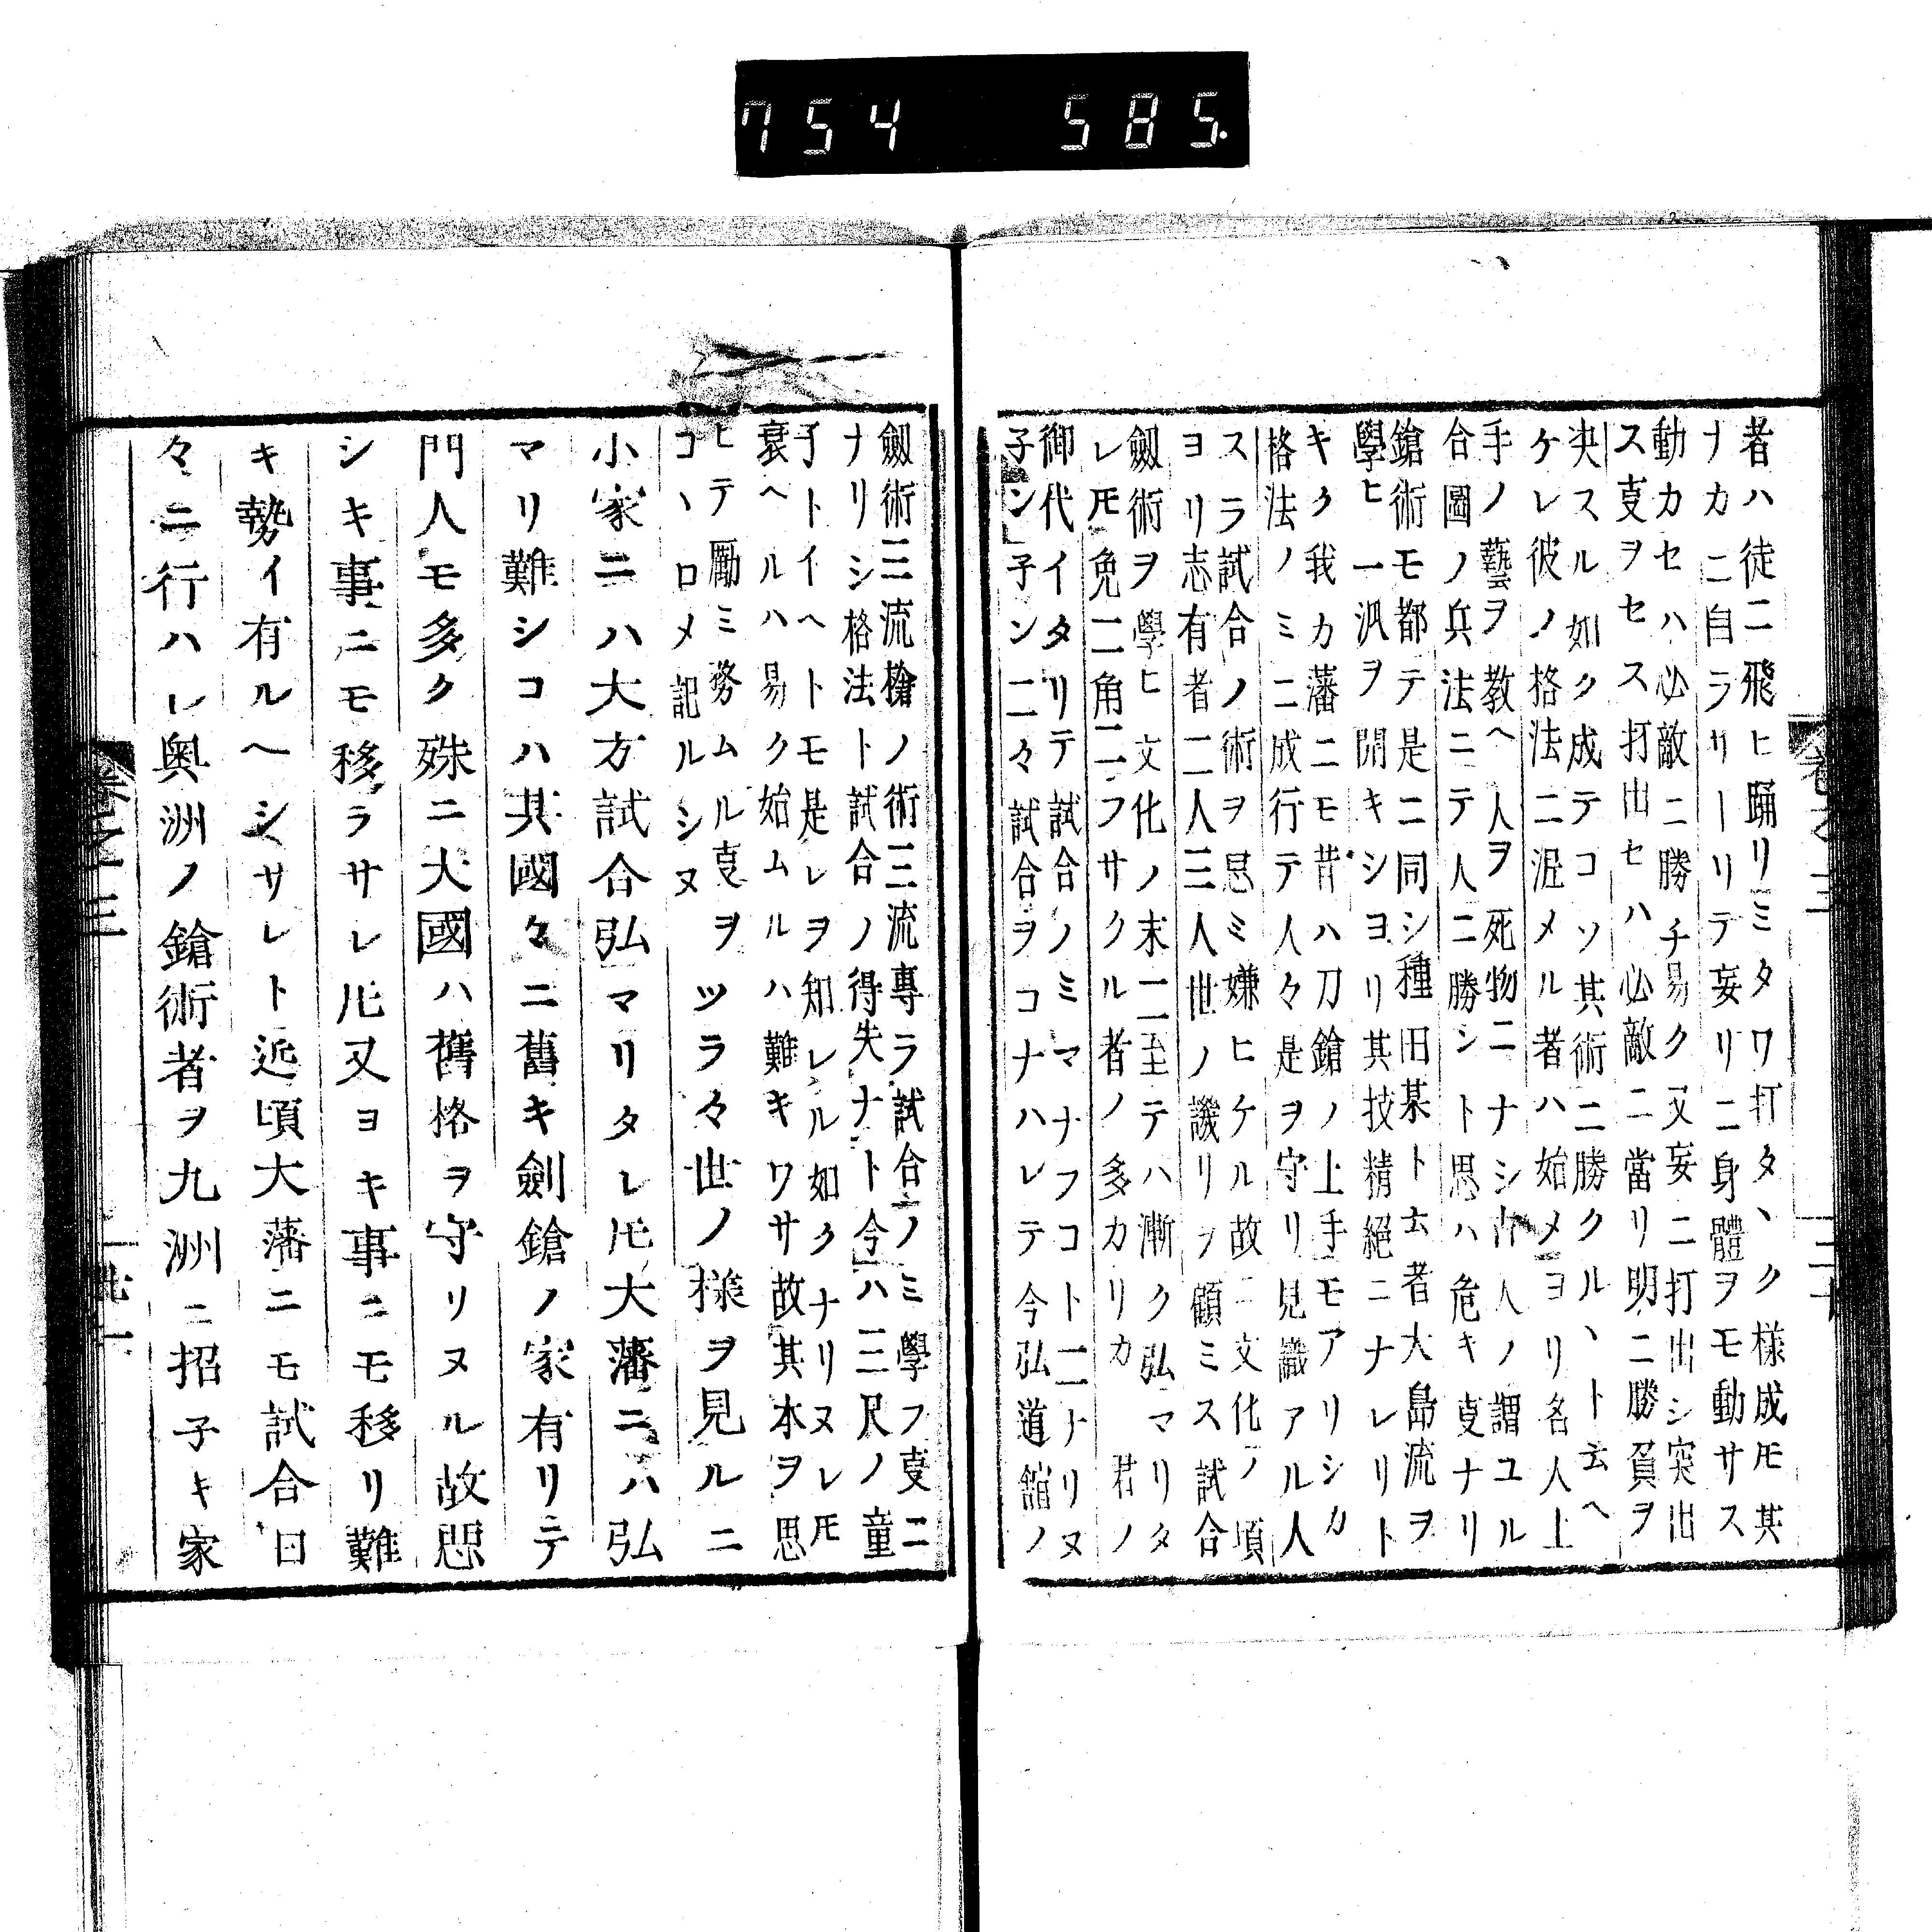 754 585.
者ハ徒ニ飛ヒ踊リミタワ打タヽク様成𪜈其
ナカニ自ラサーリテ妄リニ身體ヲモ動サス
動カセハ必敵ニ勝チ易ク又妄ニ打出シ突出
ス叓ヲセス打出セハ必敵ニ當リ明ニ勝負ヲ
决スル如ク成テコソ其術ニ勝クルヽト云ヘ
ケレ彼ノ格法ニ泥メル者ハ始メヨリ名人上
手ノ藝ヲ教ヘ人ヲ死物ニナシ人ノ謂ユル
合圖ノ兵法ニテ人ニ勝シト思ハ危キ叓ナリ
鎗術モ都テ是ニ同シ種田某ト云者大島流ヲ
學ヒ一汎ヲ開キシヨリ其技精絕ニナレリト
キク我カ藩ニモ昔ハ刀鎗ノ上手モアリシカ
格法ノミニ成行テ人々是ヲ守リ見識アル人
スラ試合ノ術ヲ忌ミ嫌ヒケル故ニ文化ノ頃
ヨリ志有者二人三人世ノ譏リヲ顧ミス試合
劔術ヲ學ヒ文化ノ末ニ至テハ漸ク弘マリタ
レ𪜈兔ニ角ニフサクル者ノ多カリカ 君ノ
御代イタリテ試合ノミマナフコトニナリヌ
子ン子ン二々試合ヲコナハレテ今弘道舘ノ
劔術三流槍ノ術三流專ラ試合ノミ學フ叓ニ
ナリシ格法ト試合ノ得失ナト今ハ三尺ノ童
子トイヘトモ是レヲ知レル如クナリヌレ𪜈
衰ヘルハ易ク始ムルハ難キワサ故其本ヲ思
ヒテ勵ミ務ムル叓ヲ
コヽロメ記ルシヌ
ツラ々世ノ様ヲ見ルニ
小家ニハ大方試合弘マリタレ𪜈大藩ニハ弘
マリ難シコハ其國々ニ舊キ劍鎗ノ家有リテ
門人モ多ク殊ニ大國ハ舊格ヲ守リヌル故惡
シキ事ニモ移ラサレ𪜈又ヨキ事ニモ移リ難
キ勢イ有ルヘシサレト近頃大藩ニモ試合日
々ニ行ハレ奥洲ノ鎗術者ヲ九洲ニ招子キ家